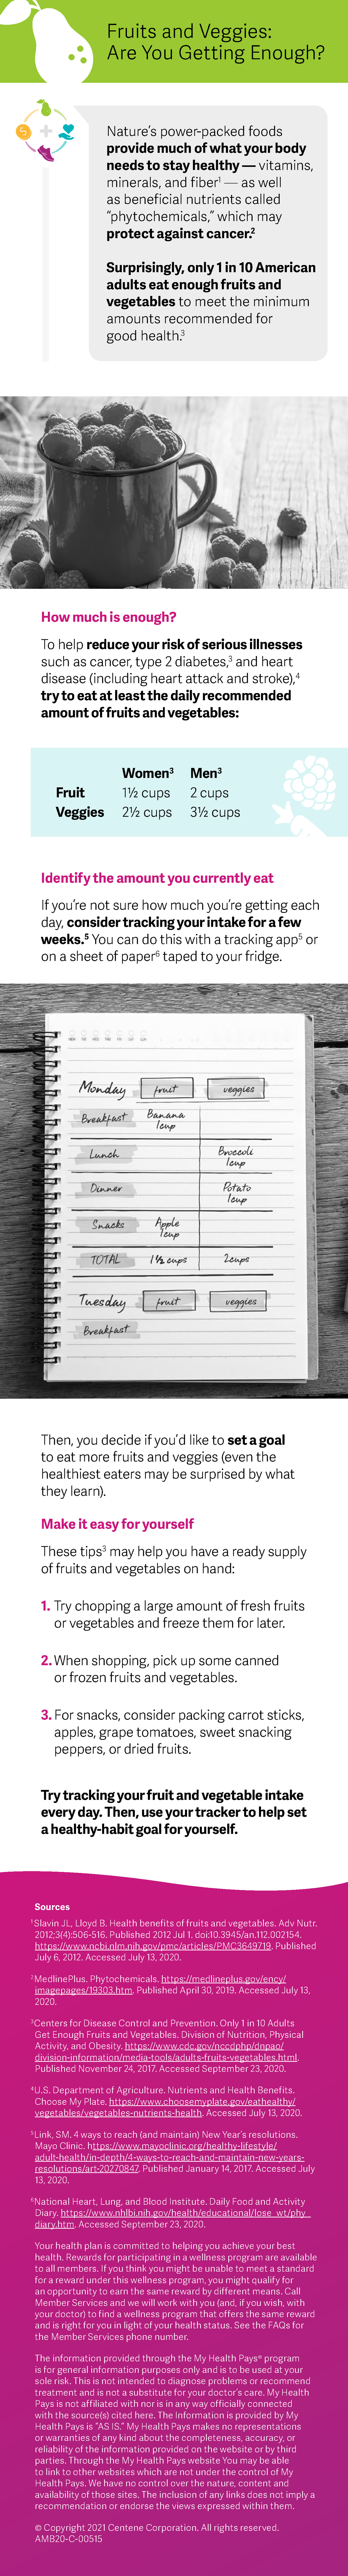 Fruits and Veggies:
Are You Getting Enough?
Nature's power-packed foods
provide much of what your body
needs to stay healthy — vitamins,
minerals, and fiber¹ — as well
as beneficial nutrients called
"phytochemicals," which may
protect against cancer.²
Surprisingly, only 1 in 10 American
adults eat enough fruits and
vegetables to meet the minimum
amounts recommended for
good health.³
How much is enough?
To help reduce your risk of serious illnesses
such as cancer, type 2 diabetes,³ and heart
disease (including heart attack and stroke),⁴
try to eat at least the daily recommended
amount of fruits and vegetables:
Women³ Men³
Fruit 1½ cups 2 cups
Veggies 2½ cups 3½ cups
Identify the amount you currently eat
If you're not sure how much you're getting each
day, consider tracking your intake for a few
weeks.⁵ You can do this with a tracking app⁵ or
on a sheet of paper⁶ taped to your fridge.
Monday fruit veggies
Breakfast Banana
1cup
Lunch Broccoli
1cup
Dinner Potato
1cup
Snacks Apple
1cup
TOTAL 1½ cups 2cups
Tuesday fruit veggies
Breakfast
Then, you decide if you'd like to set a goal
to eat more fruits and veggies (even the
healthiest eaters may be surprised by what
they learn).
Make it easy for yourself
These tips³ may help you have a ready supply
of fruits and vegetables on hand:
1. Try chopping a large amount of fresh fruits
or vegetables and freeze them for later.
2. When shopping, pick up some canned
or frozen fruits and vegetables.
3. For snacks, consider packing carrot sticks,
apples, grape tomatoes, sweet snacking
peppers, or dried fruits.
Try tracking your fruit and vegetable intake
every day. Then, use your tracker to help set
a healthy-habit goal for yourself.
Sources
¹Slavin JL, Lloyd B. Health benefits of fruits and vegetables. Adv Nutr.
2012;3(4):506-516. Published 2012 Jul 1. doi:10.3945/an.112.002154.
https://www.ncbi.nlm.nih.gov/pmc/articles/PMC3649719. Published
July 6, 2012. Accessed July 13, 2020.
²MedlinePlus. Phytochemicals. https://medlineplus.gov/ency/
imagepages/19303.htm. Published April 30, 2019. Accessed July 13,
2020.
³Centers for Disease Control and Prevention. Only 1 in 10 Adults
Get Enough Fruits and Vegetables. Division of Nutrition, Physical
Activity, and Obesity. https://www.cdc.gov/nccdphp/dnpao/
division-information/media-tools/adults-fruits-vegetables.html.
Published November 24, 2017. Accessed September 23, 2020.
⁴U.S. Department of Agriculture. Nutrients and Health Benefits.
Choose My Plate. https://www.choosemyplate.gov/eathealthy/
vegetables/vegetables-nutrients-health. Accessed July 13, 2020.
⁵Link, SM. 4 ways to reach (and maintain) New Year's resolutions.
Mayo Clinic. https://www.mayoclinic.org/healthy-lifestyle/
adult-health/in-depth/4-ways-to-reach-and-maintain-new-years-
resolutions/art-20270847. Published January 14, 2017. Accessed July
13, 2020.
⁶National Heart, Lung, and Blood Institute. Daily Food and Activity
Diary. https://www.nhlbi.nih.gov/health/educational/lose_wt/phy_
diary.htm. Accessed September 23, 2020.
Your health plan is committed to helping you achieve your best
health. Rewards for participating in a wellness program are available
to all members. If you think you might be unable to meet a standard
for a reward under this wellness program, you might qualify for
an opportunity to earn the same reward by different means. Call
Member Services and we will work with you (and, if you wish, with
your doctor) to find a wellness program that offers the same reward
and is right for you in light of your health status. See the FAQs for
the Member Services phone number.
The information provided through the My Health Pays® program
is for general information purposes only and is to be used at your
sole risk. This is not intended to diagnose problems or recommend
treatment and is not a substitute for your doctor's care. My Health
Pays is not affiliated with nor is in any way officially connected
with the source(s) cited here. The Information is provided by My
Health Pays is "AS IS." My Health Pays makes no representations
or warranties of any kind about the completeness, accuracy, or
reliability of the information provided on the website or by third
parties. Through the My Health Pays website You may be able
to link to other websites which are not under the control of My
Health Pays. We have no control over the nature, content and
availability of those sites. The inclusion of any links does not imply a
recommendation or endorse the views expressed within them.
© Copyright 2021 Centene Corporation. All rights reserved.
AMB20-C-00515